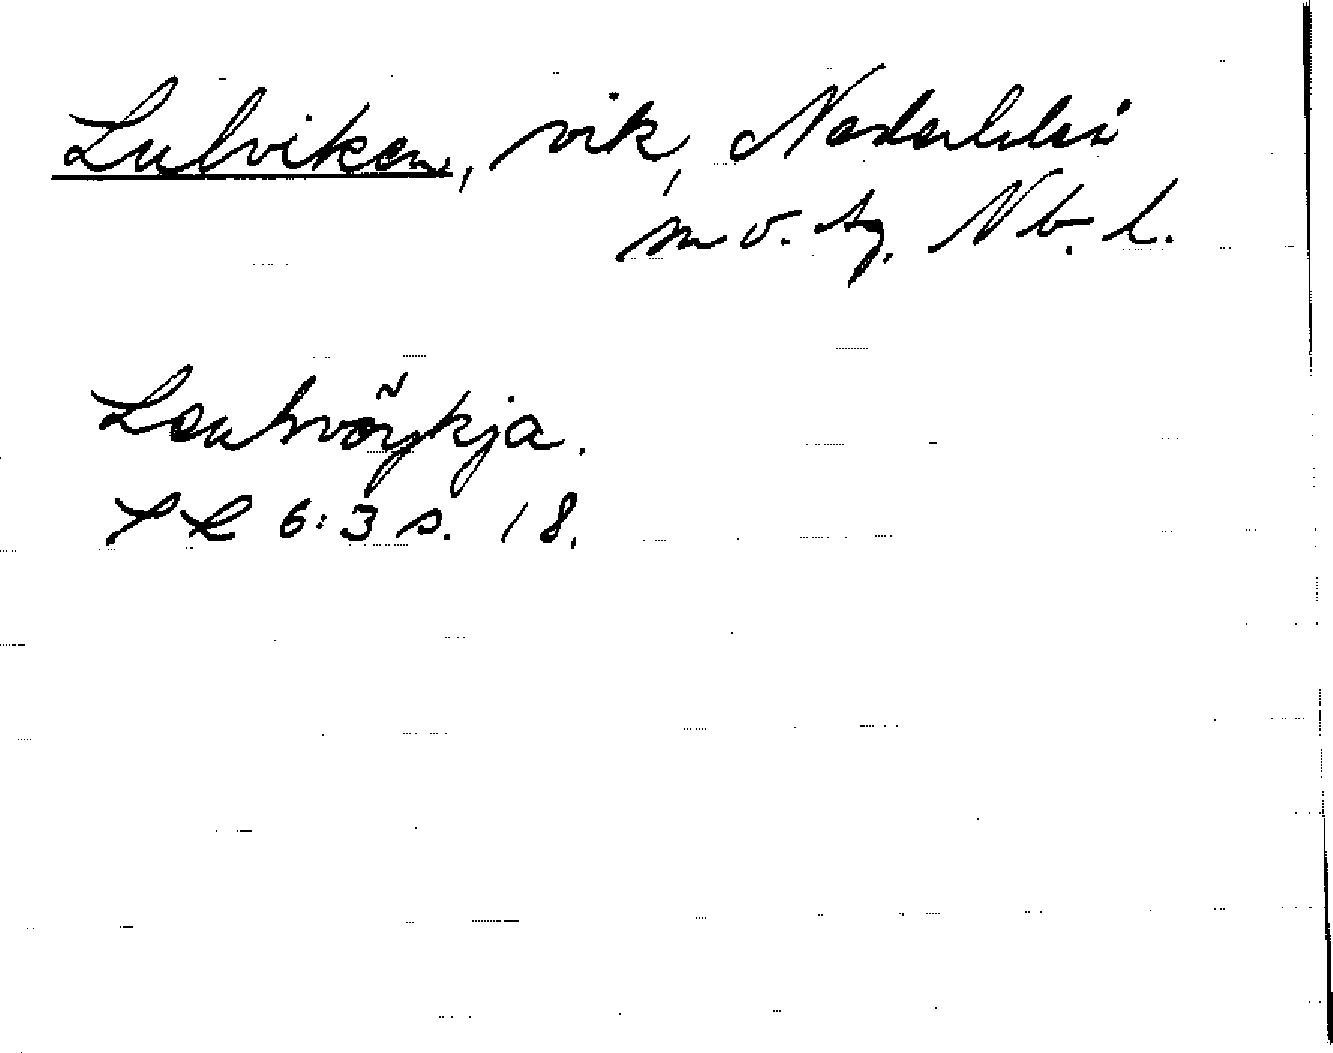 Lulviken, vik, Nederluleå
sn o. tg, Nb. l.
Leuhvöykja.
PR 6:3 s. 18.